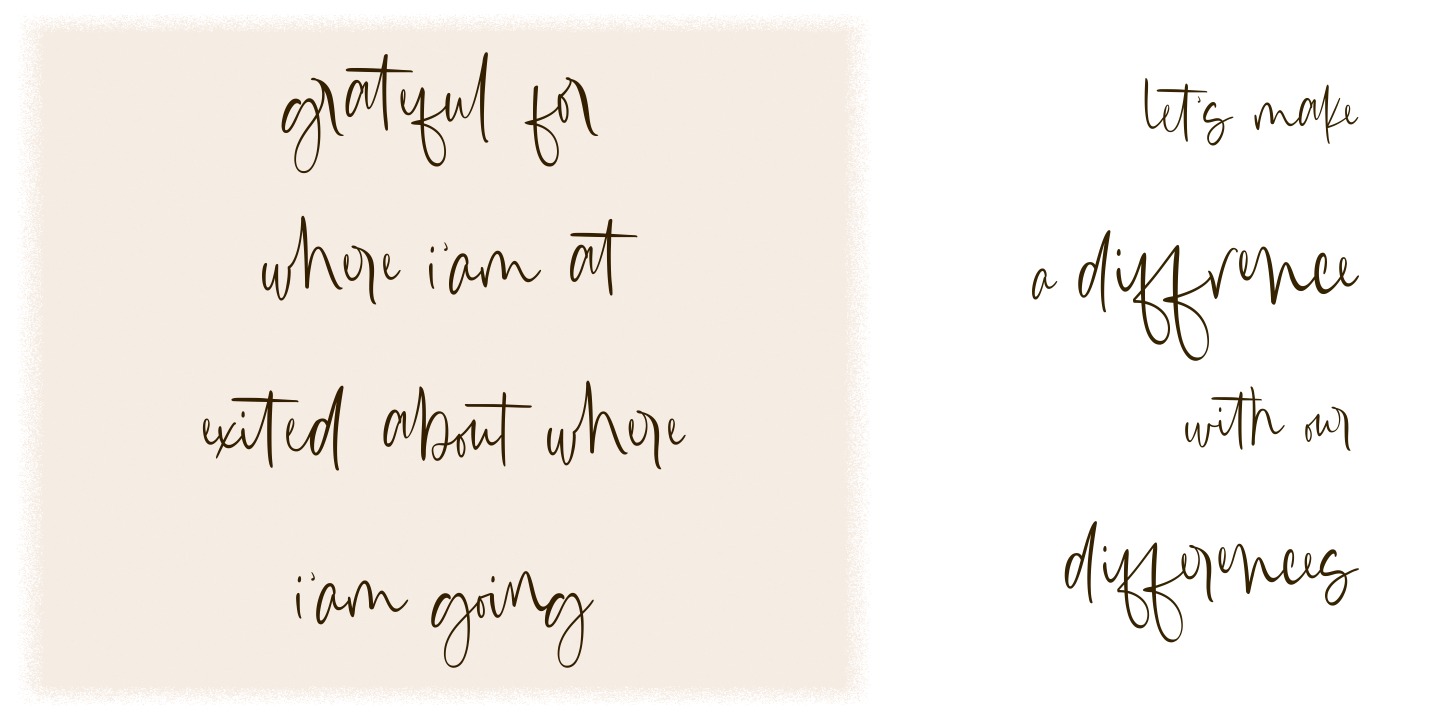 grateful for
where i'am at
exited about where
i'am going
let's make
a diffrence
with our
differences